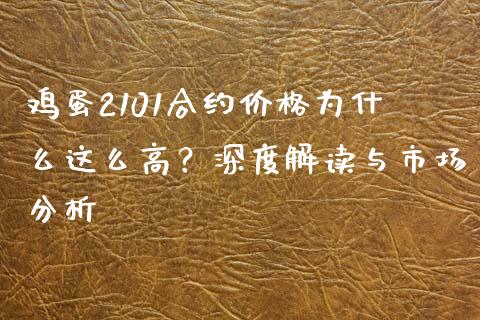 鸡蛋2101合约价格为什
么这么高？深度解读与市场
分析